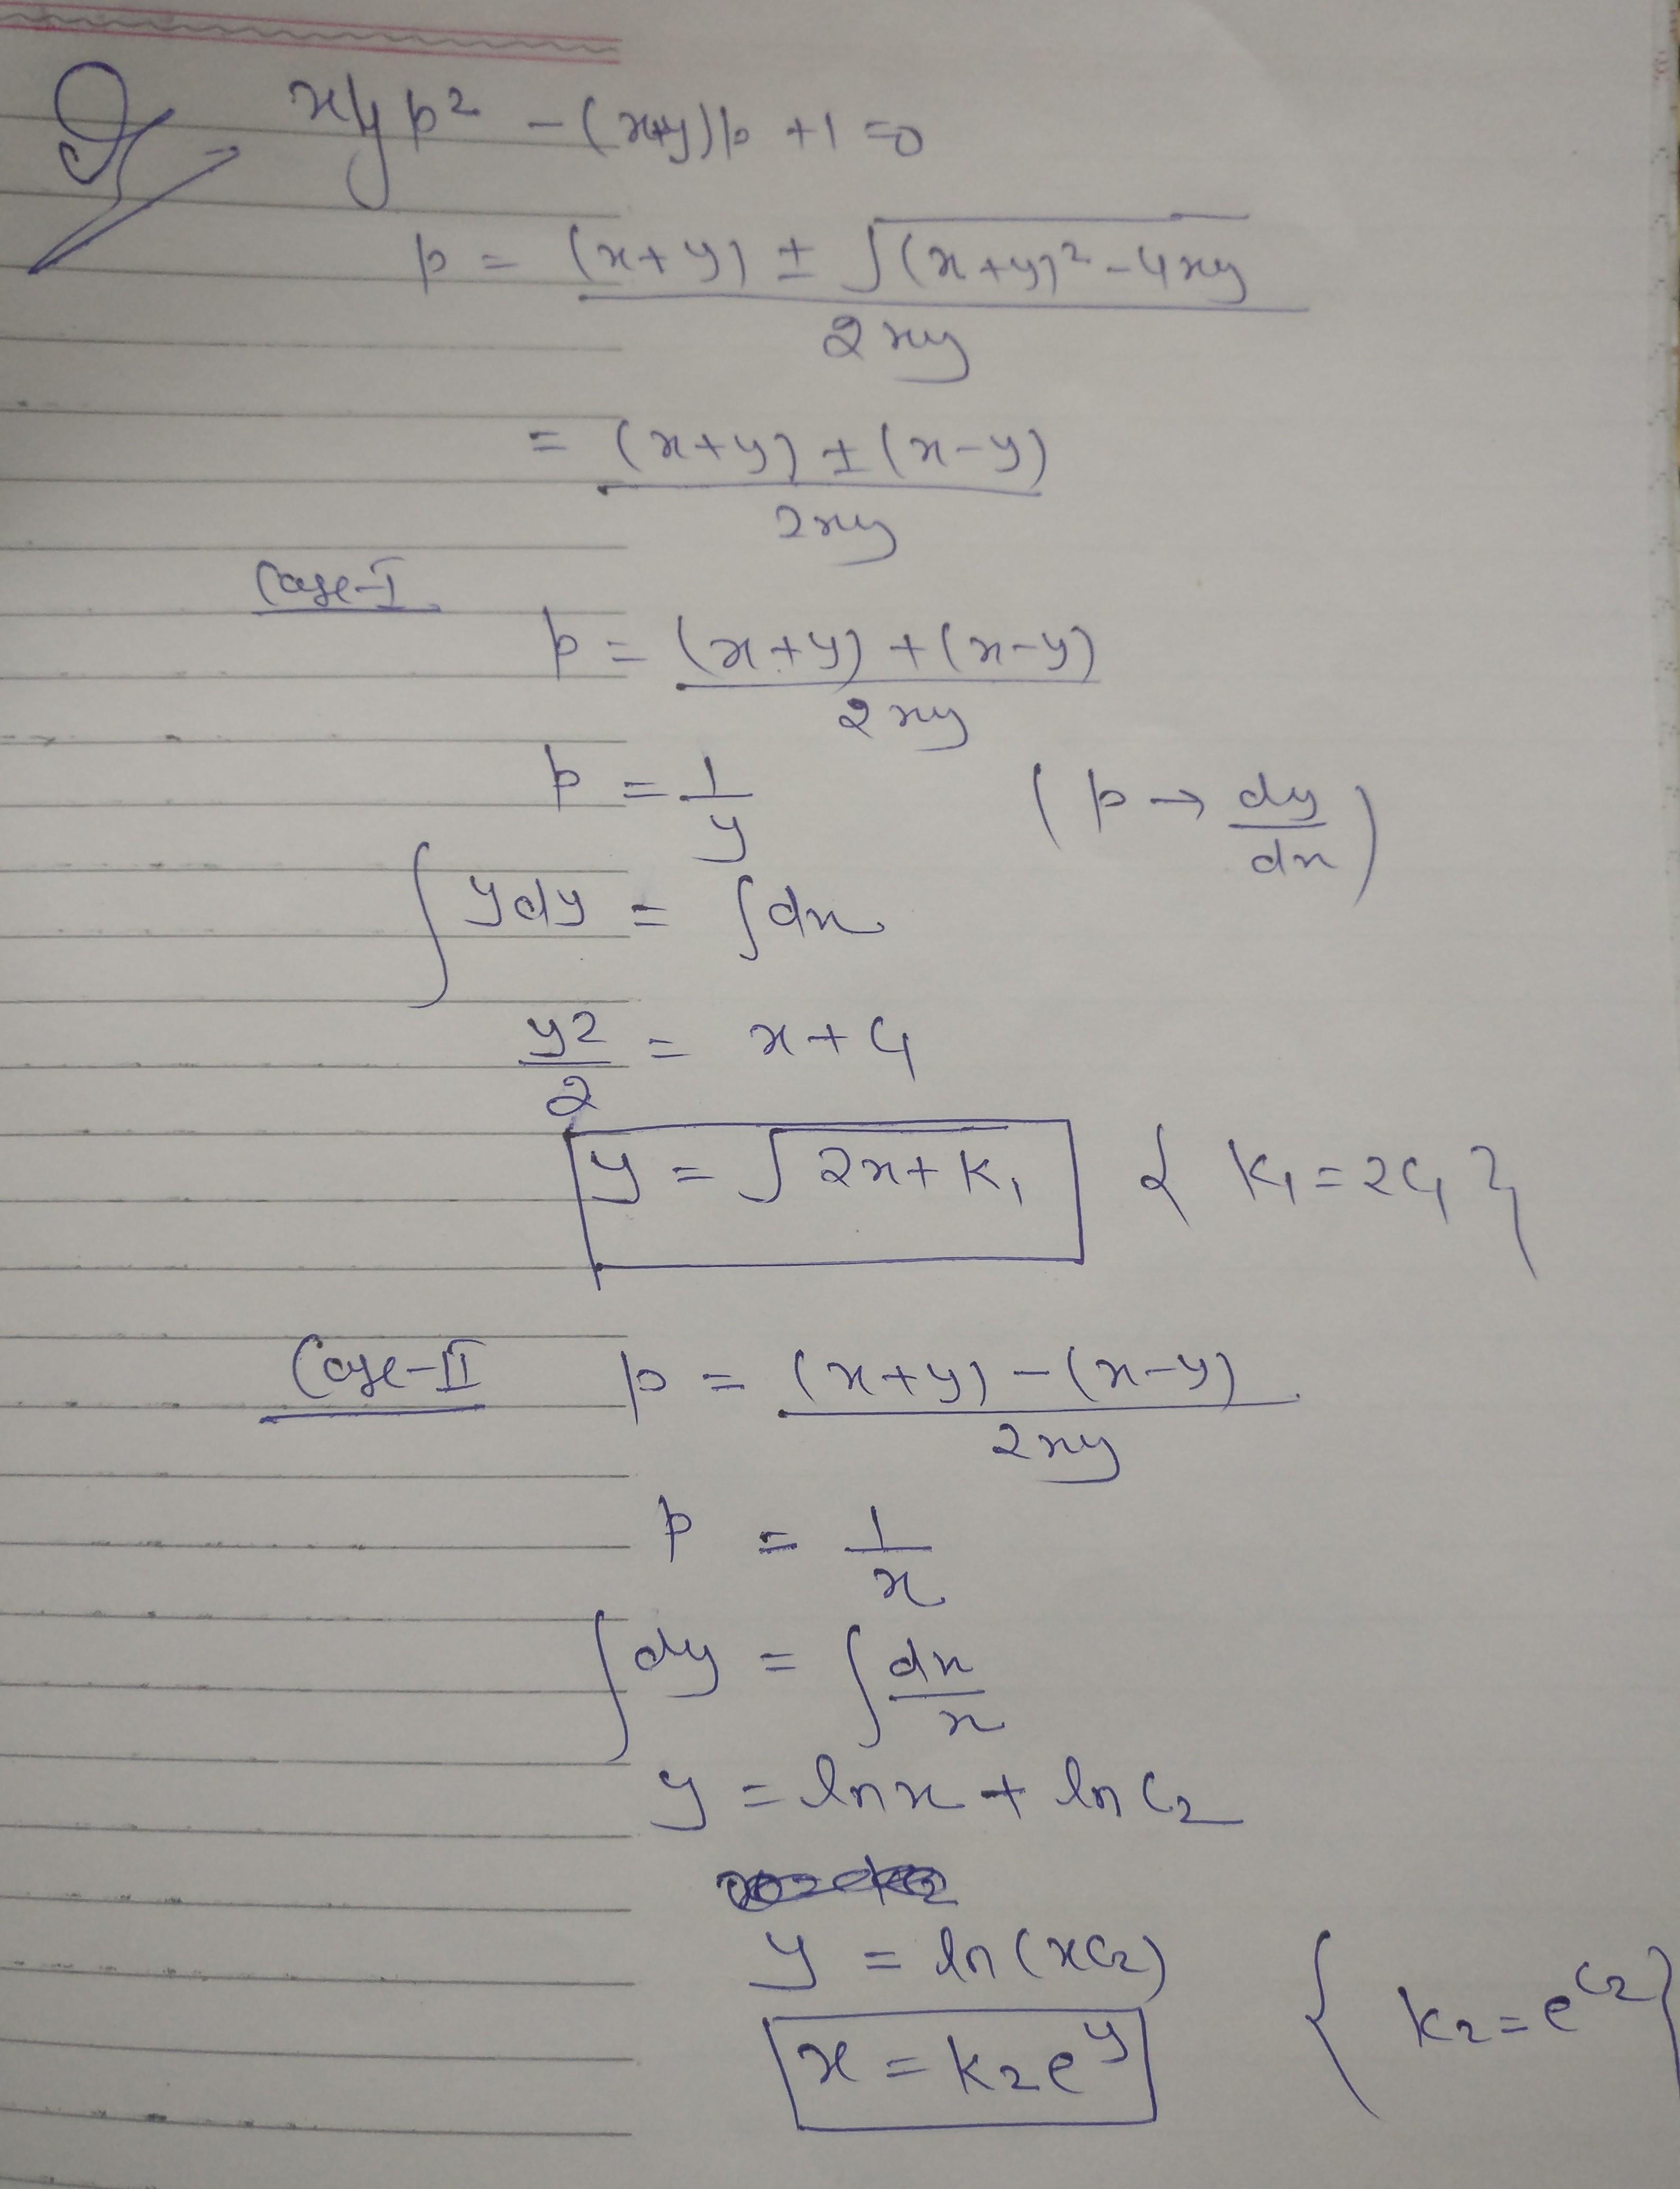 Q xy p² - (x+y)p + 1 = 0
p = (x+y) ± √((x+y)² - 4xy) / 2xy
= (x+y) ± (x-y) / 2xy
Case-I
p = (x+y) + (x-y) / 2xy
p = 1/y (p → dy/dx)
∫ y dy = ∫ dx
y²/2 = x + C₁
y = √(2x + K₁) { K₁ = 2C₁ }
Case-II p = (x+y) - (x-y) / 2xy
p = 1/x
∫ dy = ∫ dx/x
y = ln x + ln C₂
y = ln(xC₂)
x = K₂e^y { K₂ = e^C₂ }